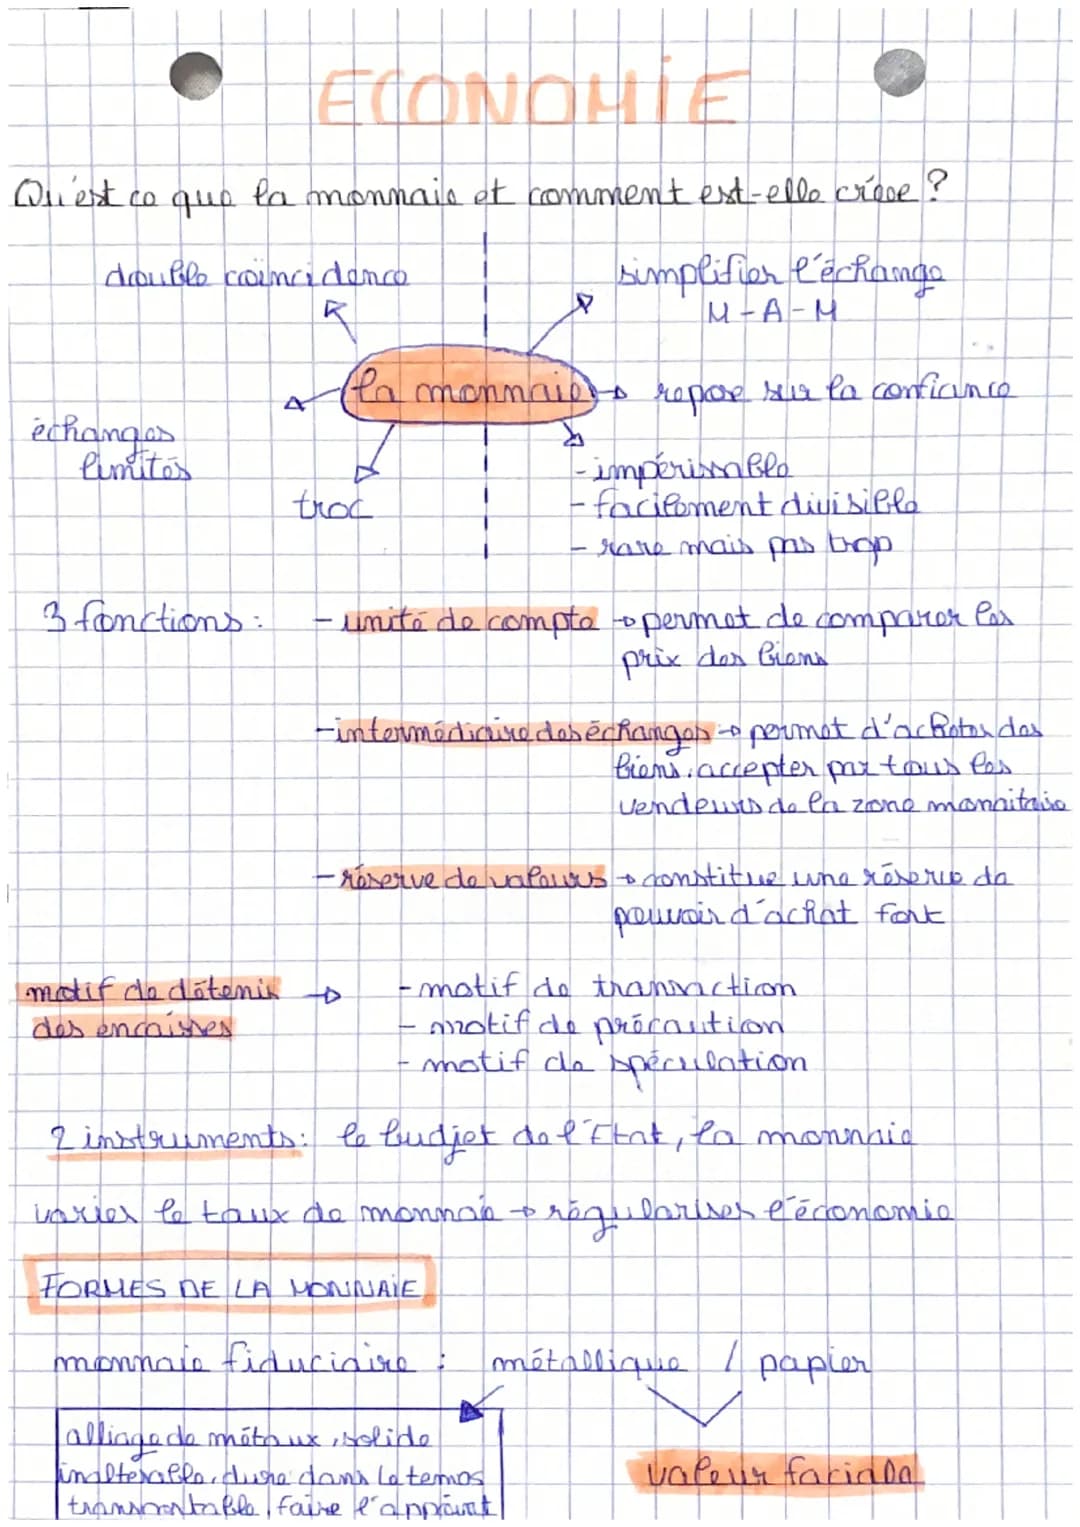 ECONOMiE
Qu'est ce que la monnaie et comment est-elle créee ?
double coïncidence
simplifier l'échange
M-A-M
la monnaie
repose sur la confiance
échanges
limités
troc
- impérissable
- facilement divisible
- rare mais pas trop
3 fonctions : - unité de compte → permet de comparer les
prix des biens
- intermédiaire des échanges → permet d'acheter des
biens. accepter par tous les
vendeurs de la zone monnitaire
- réserve de valeurs → constitue une réserve de
pouvoir d'achat fort
motif de détenir → - motif de transaction
des encaisses - motif de précaution
- motif de spéculation
2 instruments : le budjet de l'Etat, la monnaie
varier le taux de monnaie → régulariser l'économie
FORMES DE LA MONNAiE
monnaie fiduciaire : métallique / papier
alliage de métaux, solide
inalterable, dure dans le temps
transportable, faire l'appoint
valeur faciale